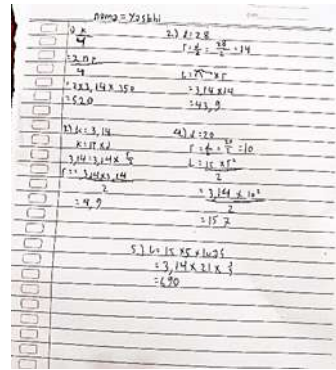 nama = Yasbhi
1) K
4
= 2πr
4
= 2x3,14 x 350
= 520
2.) d = 28
r = d/2 = 28/2 = 14
L = π xr
= 3,14 x14
= 43,9
3) k = 3,14
K = π x d
3,14 = 3,14 x
r = 3,14x3,14
2
= 4,9
4) d = 20
r = d/2 = 20/2 = 10
L = π x r²
2
= 3,14 x 10²
2
= 157
5.) L =
= 3,14 x 21 x
= 690